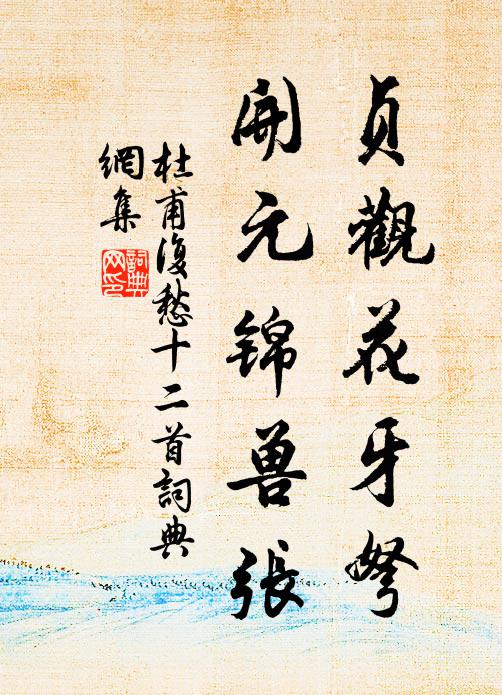 貞觀花牙弩
開元锦兽張
杜甫復愁十二首詞典
網集
詞典
网印